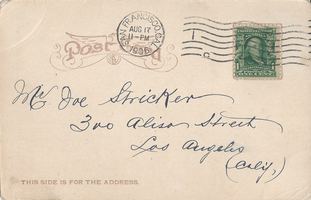 Post Card
SAN FRANCISCO, CAL.
AUG 17
11-PM
1906
1
C
ONE CENT
Mr Joe Stricker
300 Aliso Street
Los Angeles
(Calif.)
THIS SIDE IS FOR THE ADDRESS.